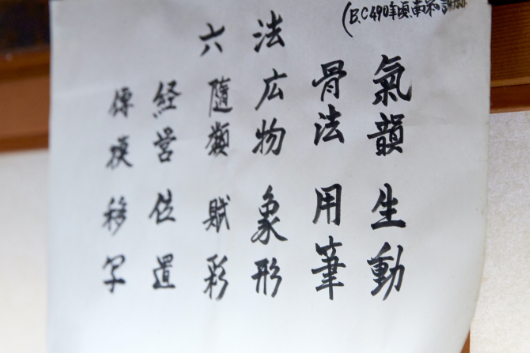 (B.C490年頃、南斉の
六法
氣韻 生動
骨法 用筆
広物 象形
隨類 賦彩
経営 位置
傳模 移写